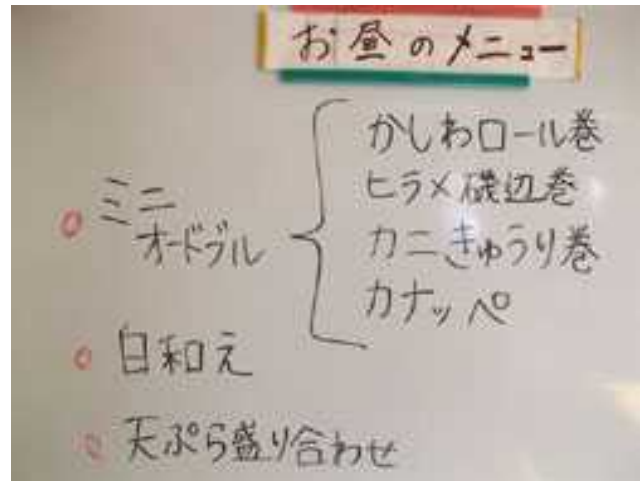 お昼のメニュー
ミニ
オードブル
かしわロール巻
ヒラメ磯辺巻
カニきゅうり巻
カナッペ
白和え
天ぷら盛り合わせ